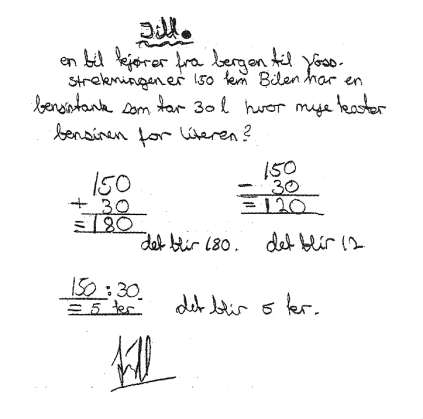 Jill.
en bil kjører fra bergen til Voss.
strekningen er 150 km Bilen har en
bensintank som tar 30 l hvor mye koster
bensinen for literen?
150
+ 30
= 180
det blir 180.
150
- 30
= 120
det blir 12
150 : 30
= 5 kr
det blir 5 kr.
Jill